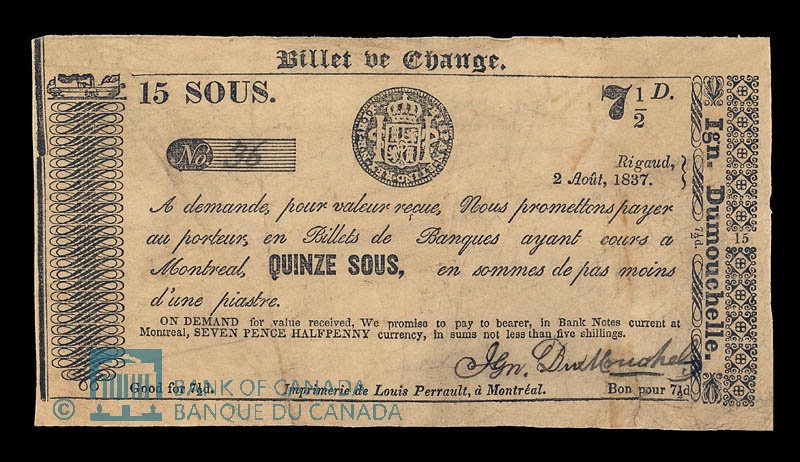 Billet de Change.
15 SOUS.
7 1/2 D.
No. 36
Rigaud,
2 Août, 1837.
A demande, pour valeur reçue, Nous promettons payer
au porteur, en Billets de Banques ayant cours a
Montreal, QUINZE SOUS, en sommes de pas moins
d'une piastre.
ON DEMAND for value received, We promise to pay to bearer, in Bank Notes current at
Montreal, SEVEN PENCE HALFPENNY currency, in sums not less than five shillings.
Ign. Dumouchelle
Good for 7½d.
Imprimerie de Louis Perrault, à Montréal.
Bon pour 7½d
7½d.
Ign. Dumouchelle.
15
© BANK OF CANADA
BANQUE DU CANADA